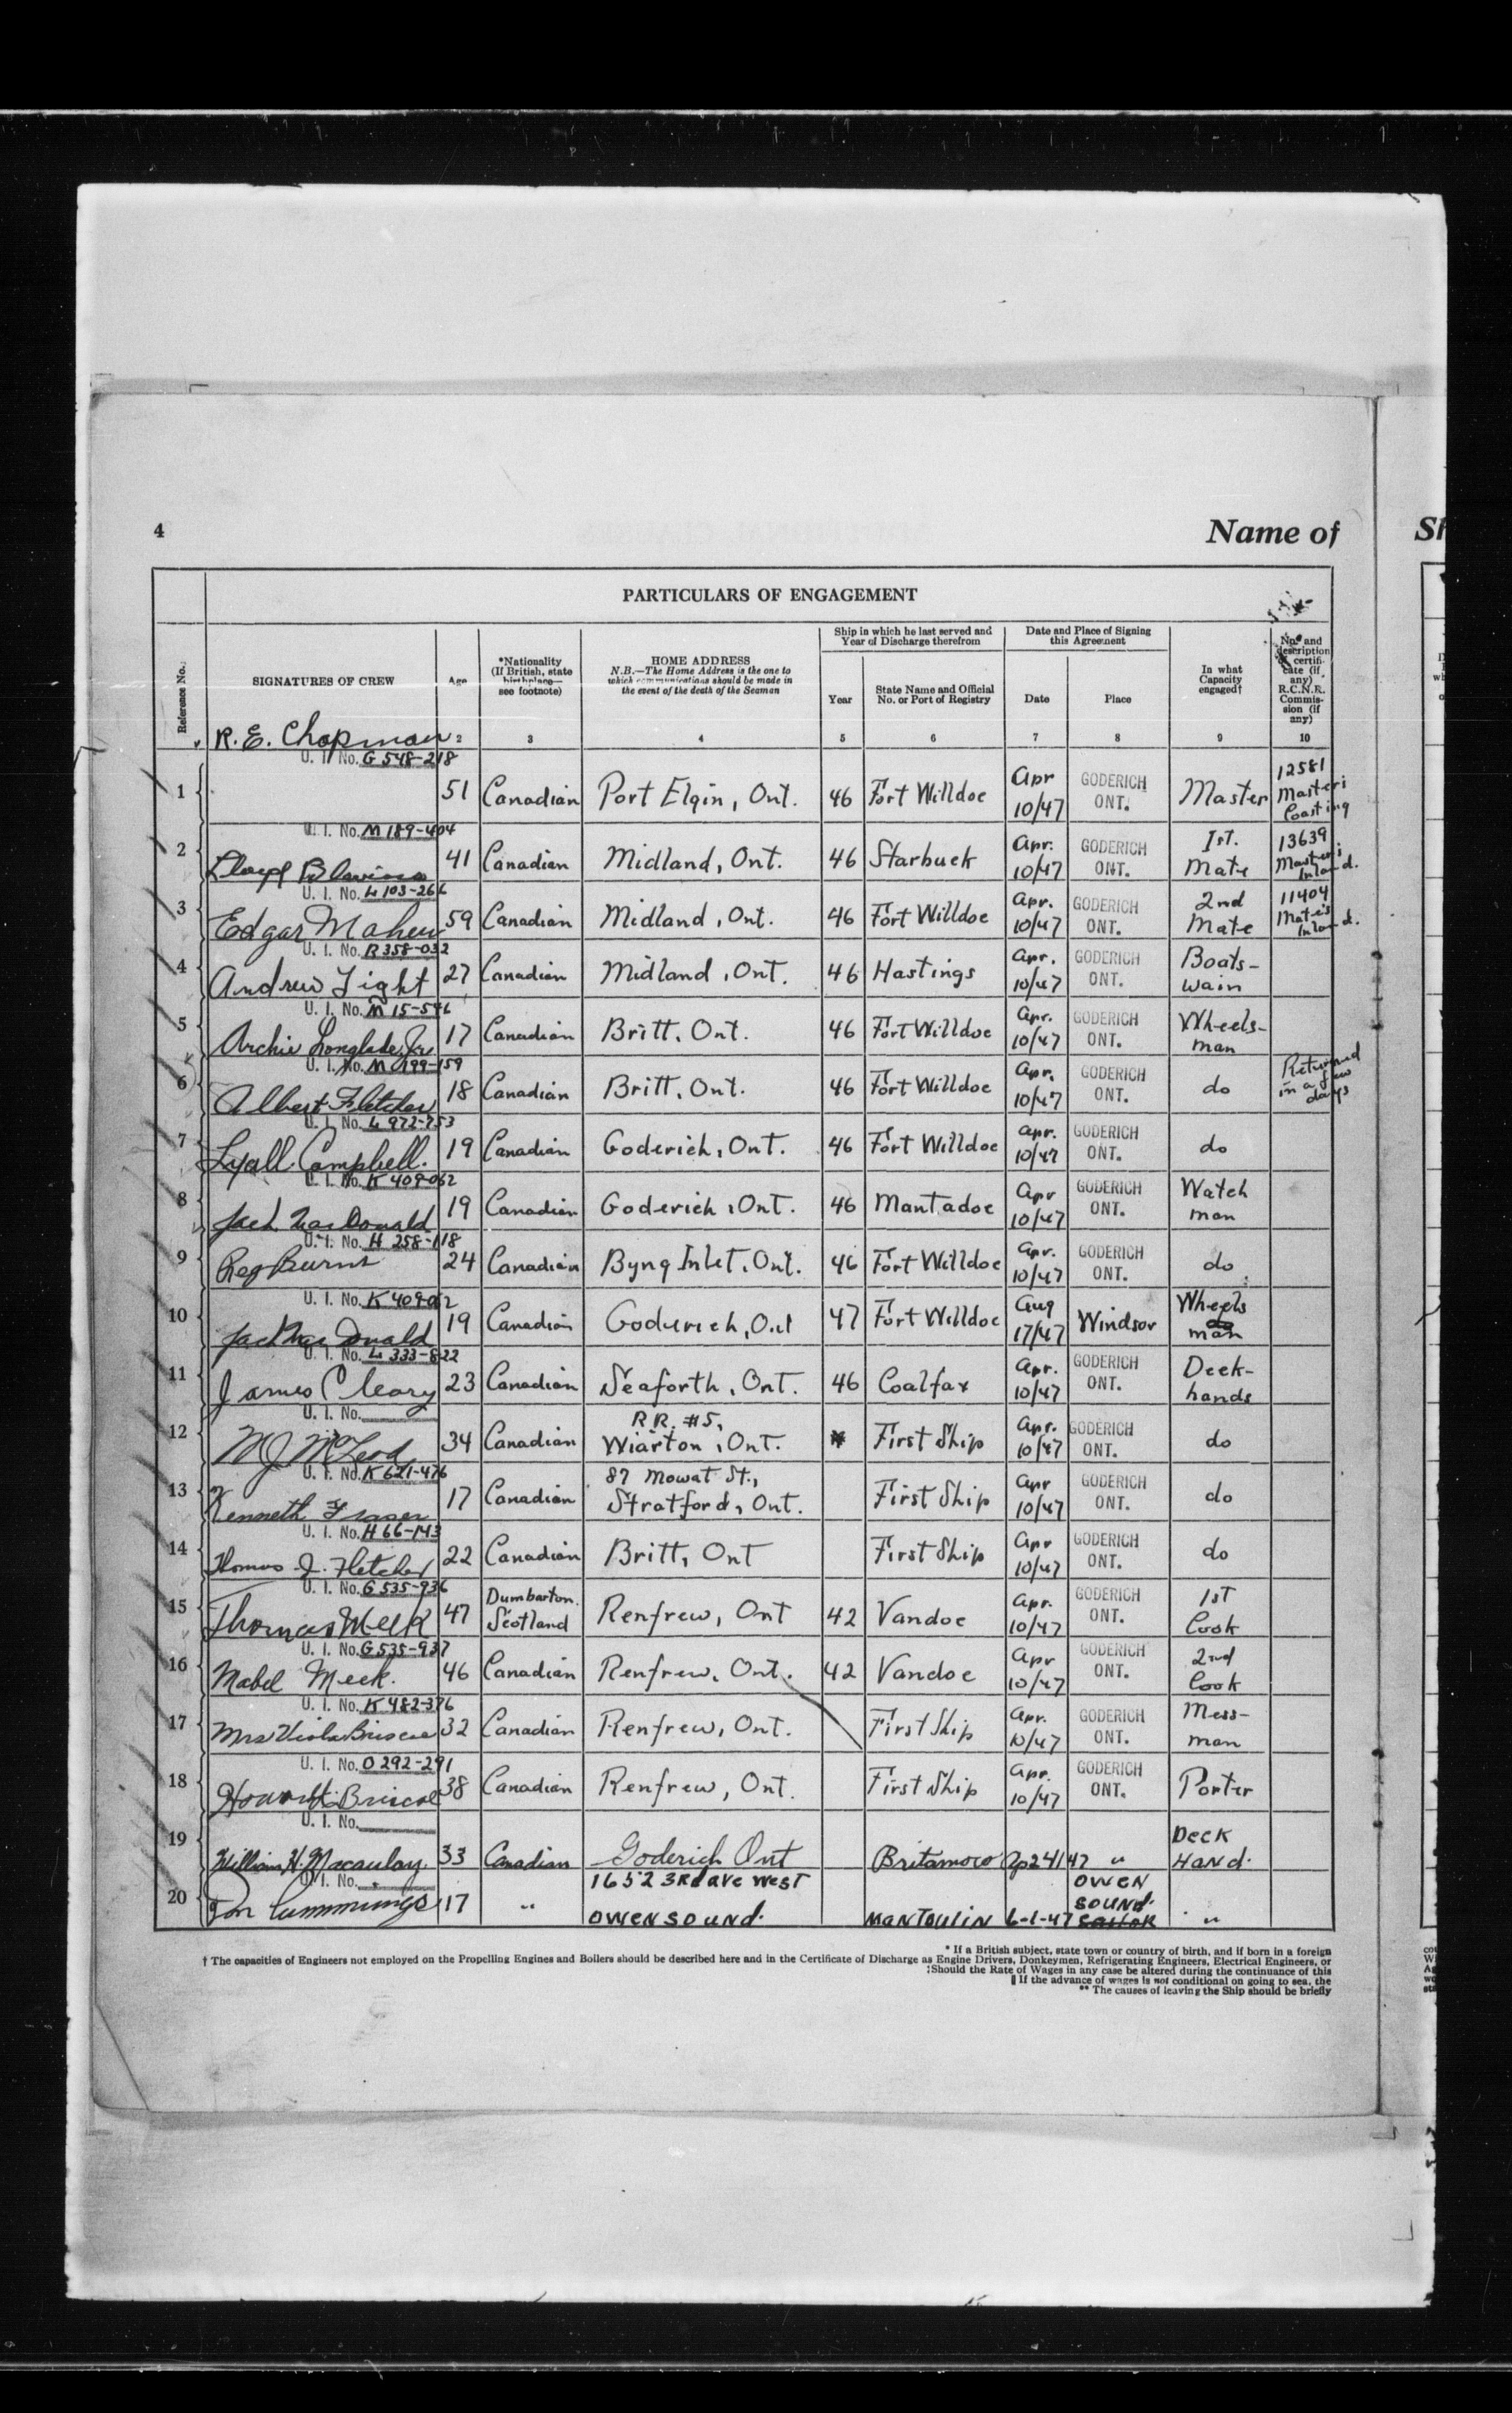 4
Name of
Sh
PARTICULARS OF ENGAGEMENT
Reference No.
SIGNATURES OF CREW
Age
*Nationality
(If British, state
birthplace—
see footnote)
HOME ADDRESS
N.B.—The Home Address is the one to
which communications should be made in
the event of the death of the Seaman
Ship in which he last served and
Year of Discharge therefrom
Year
State Name and Official
No. or Port of Registry
Date and Place of Signing
this Agreement
Date
Place
In what
Capacity
engaged†
No. and
description
of certifi-
cate (if
any)
R.C.N.R.
Commis-
sion (if
any)
R. E. Chapman 2 3 4 5 6 7 8 9 10
U. I. No. G 548-218
1 51 Canadian Port Elgin, Ont. 46 Fort Willdoc Apr 10/47 GODERICH ONT. Master 12581 Masters Coasting
U. I. No. M 189-404
2 Lloyd 41 Canadian Midland, Ont. 46 Starbuck Apr. 10/47 GODERICH ONT. 1st. Mate 13639 Masters Inland.
U. I. No. L 103-266
3 Edgar Mahew 59 Canadian Midland, Ont. 46 Fort Willdoc Apr. 10/47 GODERICH ONT. 2nd Mate 11404 Mates Inland.
U. I. No. R 358-032
4 Andrew Light 27 Canadian Midland, Ont. 46 Hastings Apr. 10/47 GODERICH ONT. Boats-wain
U. I. No. M 15-546
5 Archie Longlade Jr. 17 Canadian Britt, Ont. 46 Fort Willdoc Apr. 10/47 GODERICH ONT. Wheels-man
U. I. No. M 199-159
6 Albert Fletcher 18 Canadian Britt, Ont. 46 Fort Willdoc Apr. 10/47 GODERICH ONT. do Returned in a few days
U. I. No. L 972-753
7 Lyall Campbell. 19 Canadian Goderich, Ont. 46 Fort Willdoc Apr. 10/47 GODERICH ONT. do
U. I. No. K 409-062
8 Jack MacDonald 19 Canadian Goderich, Ont. 46 Mantadoc Apr 10/47 GODERICH ONT. Watch man
U. I. No. H 258-118
9 Reg Burns 24 Canadian Byng Inlet, Ont. 46 Fort Willdoc Apr. 10/47 GODERICH ONT. do
U. I. No. K 409-062
10 Jack MacDonald 19 Canadian Goderich, Ont 47 Fort Willdoc Aug 17/47 Windsor Wheels man
U. I. No. L 333-822
11 James Cleary 23 Canadian Seaforth, Ont. 46 Coalfax Apr. 10/47 GODERICH ONT. Deck-hands
U. I. No.
12 M J McLeod 34 Canadian R.R. #5, Wiarton, Ont. First Ship Apr. 10/47 GODERICH ONT. do
U. I. No. K 621-476
13 Kenneth Fraser 17 Canadian 87 Mowat St., Stratford, Ont. First Ship Apr 10/47 GODERICH ONT. do
U. I. No. H 66-143
14 Thomas J. Fletcher 22 Canadian Britt, Ont First Ship Apr 10/47 GODERICH ONT. do
U. I. No. G 535-936
15 Thomas Meek 47 Dumbarton. Scotland Renfrew, Ont 42 Vandoc Apr. 10/47 GODERICH ONT. 1st Cook
U. I. No. G 535-937
16 Mabel Meek. 46 Canadian Renfrew, Ont. 42 Vandoc Apr 10/47 GODERICH ONT. 2nd Cook
U. I. No. K 482-376
17 Mrs Viola Briscoe 32 Canadian Renfrew, Ont. First Ship Apr. 10/47 GODERICH ONT. Mess-man
U. I. No. O 292-291
18 Howard Briscoe 38 Canadian Renfrew, Ont. First Ship Apr. 10/47 GODERICH ONT. Porter
U. I. No.
19 William H. Macaulay. 33 Canadian Goderich Ont Britamoco Ap 24/47 " Deck Hand.
U. I. No.
20 Don Cummings 17 " 1652 3rd ave West OWEN SOUND. MANTOULIN 6-1-47 OWEN SOUND. "
* If a British subject, state town or country of birth, and if born in a foreign
† The capacities of Engineers not employed on the Propelling Engines and Boilers should be described here and in the Certificate of Discharge as Engine Drivers, Donkeymen, Refrigerating Engineers, Electrical Engineers, or
‡Should the Rate of Wages in any case be altered during the continuance of this
‖ If the advance of wages is not conditional on going to sea, the
** The causes of leaving the Ship should be briefly